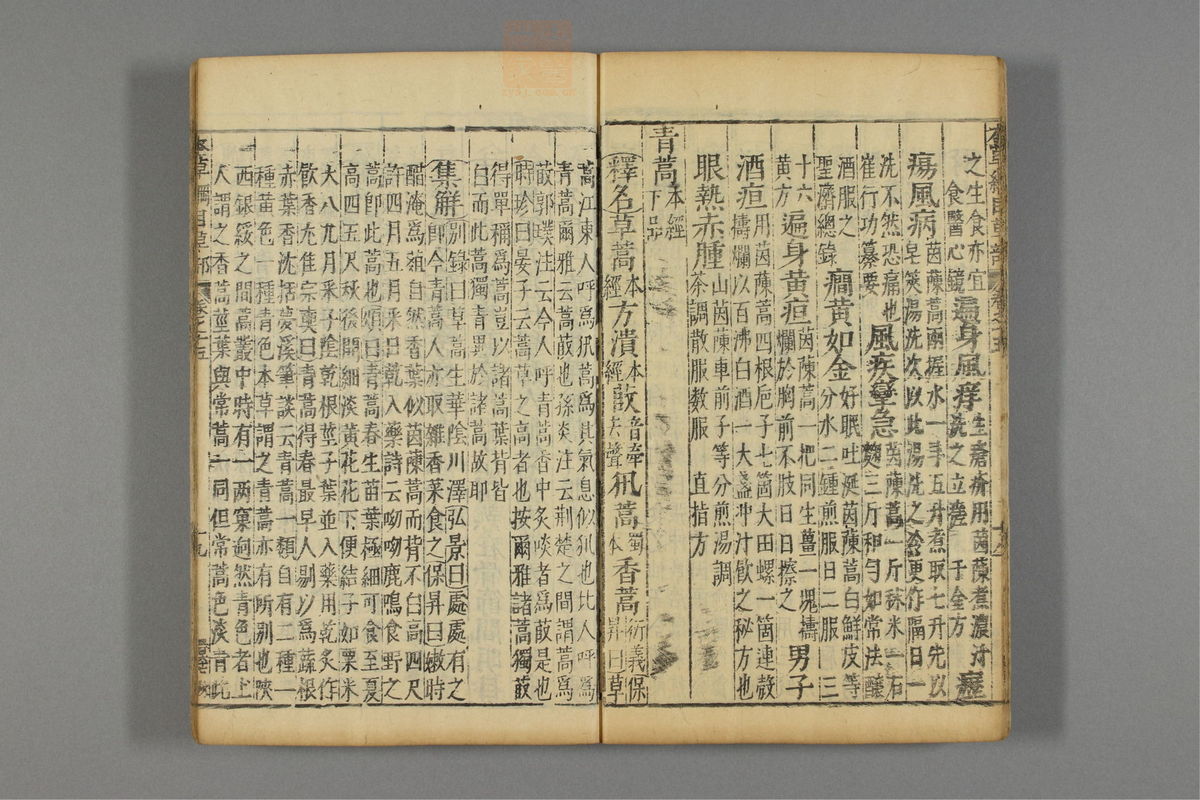 本草綱目草部 卷之十五 十八
之生食亦宜食醫心鏡 遍身風痒 生瘡疥用茵蔯煮濃汁洗之立瘥 千金方 癧
瘍風病 茵蔯蒿兩握水一手五升煮取七升先以皂莢湯洗次以此湯洗之冷更作隔日一
洗不然恐痛也崔行功纂要 風疾攣急 茵蔯蒿一斤秫米一石麴三斤和勻如常法釀
酒服之聖濟總錄 癎黃如金 好眠吐涎茵蔯蒿白鮮皮等分水二鍾煎服日二服 三
十六黃方 遍身黃疸 茵蔯蒿一把同生薑一塊擣爛於胸前不肢日日擦之 男子
酒疸 用茵蔯蒿四根巵子七箇大田螺一箇連殼擣爛以百沸白酒一大盞沖汁飲之秘方也
眼熱赤腫 山茵蔯車前子等分煎湯調茶調散服數服 直指方
青蒿 本經下品
釋名 草蒿 本經 方潰 本經 菣 音牽去聲 𤝞蒿 蜀本 香蒿 衍義 保昇曰草
蒿江東人呼爲𤝞蒿爲其氣息似𤝞也北人呼爲
青蒿爾雅云蒿菣也孫炎注云荆楚之間謂蒿爲
菣郭璞注云今人呼青蒿香中炙啖者爲菣是也
時珍曰晏子云蒿草之高者也按爾雅諸蒿獨菣
得單稱爲蒿豈以諸蒿葉背皆
白而此蒿獨青異於諸蒿故耶
集解 別錄曰草蒿生華陰川澤弘景曰處處有之
即今青蒿人亦取雜香菜食之保昇曰嫩時
醋淹爲葅自然香葉似茵蔯蒿而背不白高四尺
許四月五月采日乾入藥詩云呦呦鹿鳴食野之
蒿卽此蒿也頌曰青蒿春生苗葉極細可食至夏
高四五尺秋後開細淡黃花花下便結子如粟米
大八九月采子陰乾根莖子葉並入藥用乾炙作
飲香尤佳宗奭曰青蒿得春最早人剔以爲蔬根
赤葉香沈括夢溪筆談云青蒿一類自有二種一
種黃色一種青色本草謂之青蒿亦有所別也陜
西銀綏之間蒿叢中時有一兩窠迥然青色者土
人謂之香蒿莖葉與常蒿一同但常蒿色淡青此
本草綱目草部 卷之十五 十九